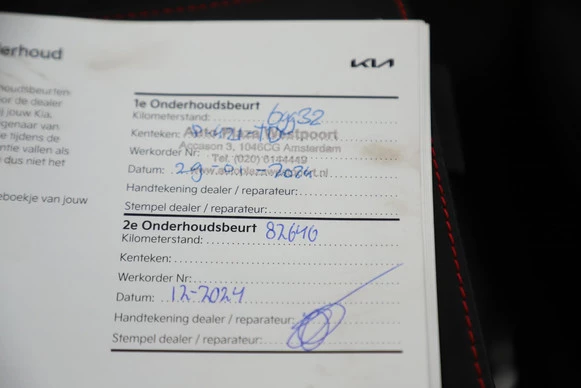 derhoud
KIA
houdsbeurten
or de dealer
ij jouw Kia.
genaar van
e tijdens de
ntie vallen als
dus niet het
eboekje van jouw
1e Onderhoudsbeurt
Kilometerstand:
Kenteken:
Auto Plaza Westpoort
Accason 3, 1046CG Amsterdam
Werkorder Nr:
Tel. (020) 6144449
Datum: 29-01-2024
Handtekening dealer / reparateur:
Stempel dealer / reparateur:
2e Onderhoudsbeurt 82646
Kilometerstand:
Kenteken:
Werkorder Nr:
Datum: 12-2024
Handtekening dealer / reparateur:
Stempel dealer / reparateur: